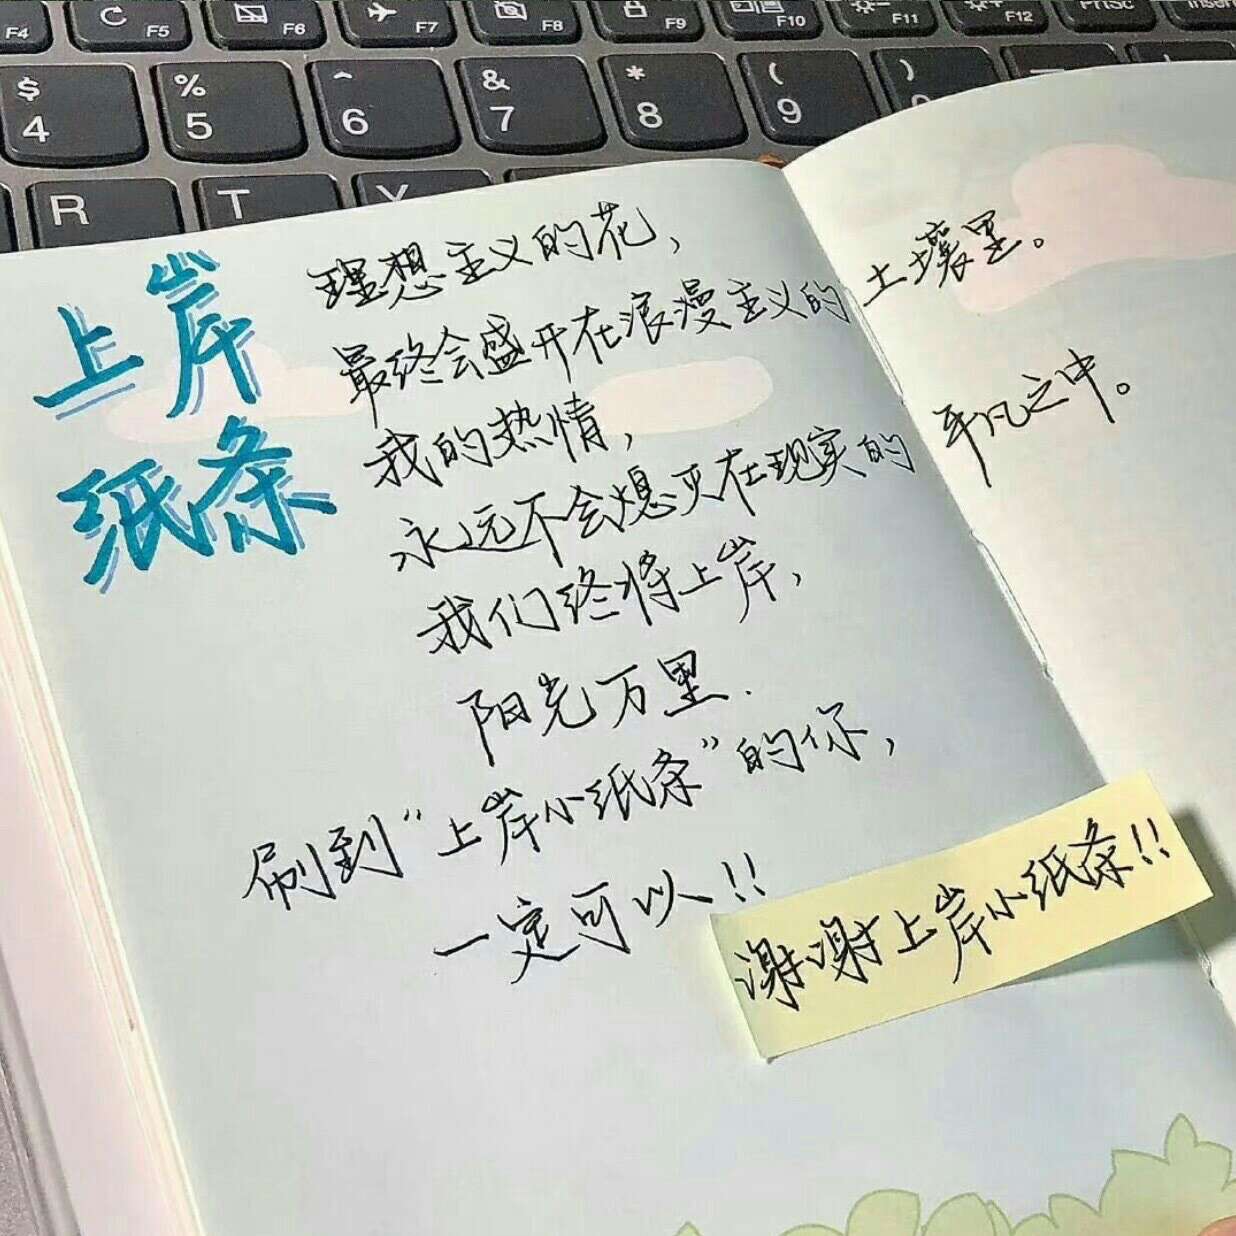 F4 F5 F6 F7 F8 F9 F10 F11 F12 PrtSc Insert
$ % ^ & * ( )
4 5 6 7 8 9
R T Y
上岸
纸条
理想主义的花，
最终会盛开在浪漫主义的土壤里。
我的热情，
永远不会熄灭在现实的平凡之中。
我们终将上岸，
阳光万里.
刷到“上岸小纸条”的你，
一定可以!!
谢谢上岸小纸条!!